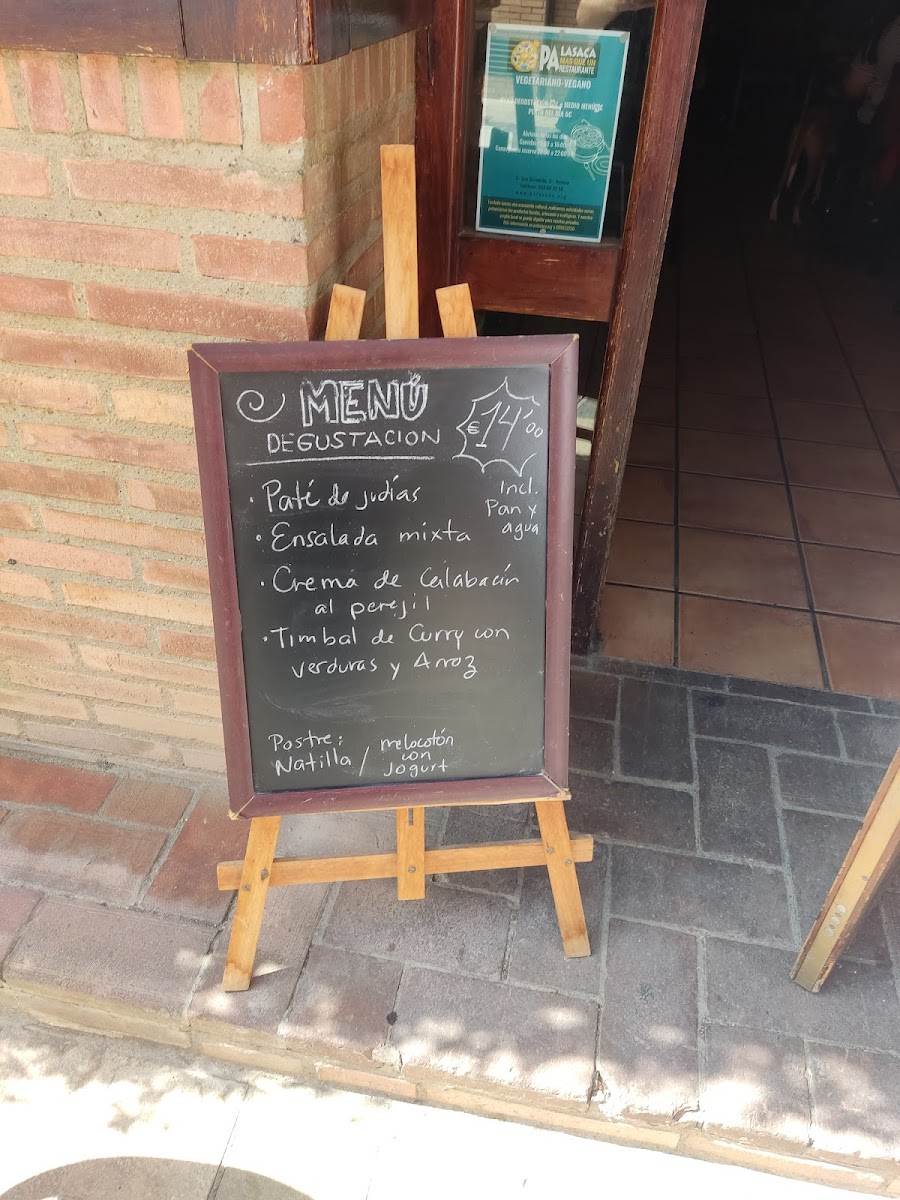 PA LASACA
MAS QUE UN
RESTAURANTE
VEGETARIANO-VEGANO
MENÚ
DEGUSTACION
€14'00
Incl.
Pan y
agua
· Paté de judías
· Ensalada mixta
· Crema de Calabacín
al perejil
· Timbal de Curry con
verduras y Arroz
Postre:
Natilla / melocotón
con
Jogurt